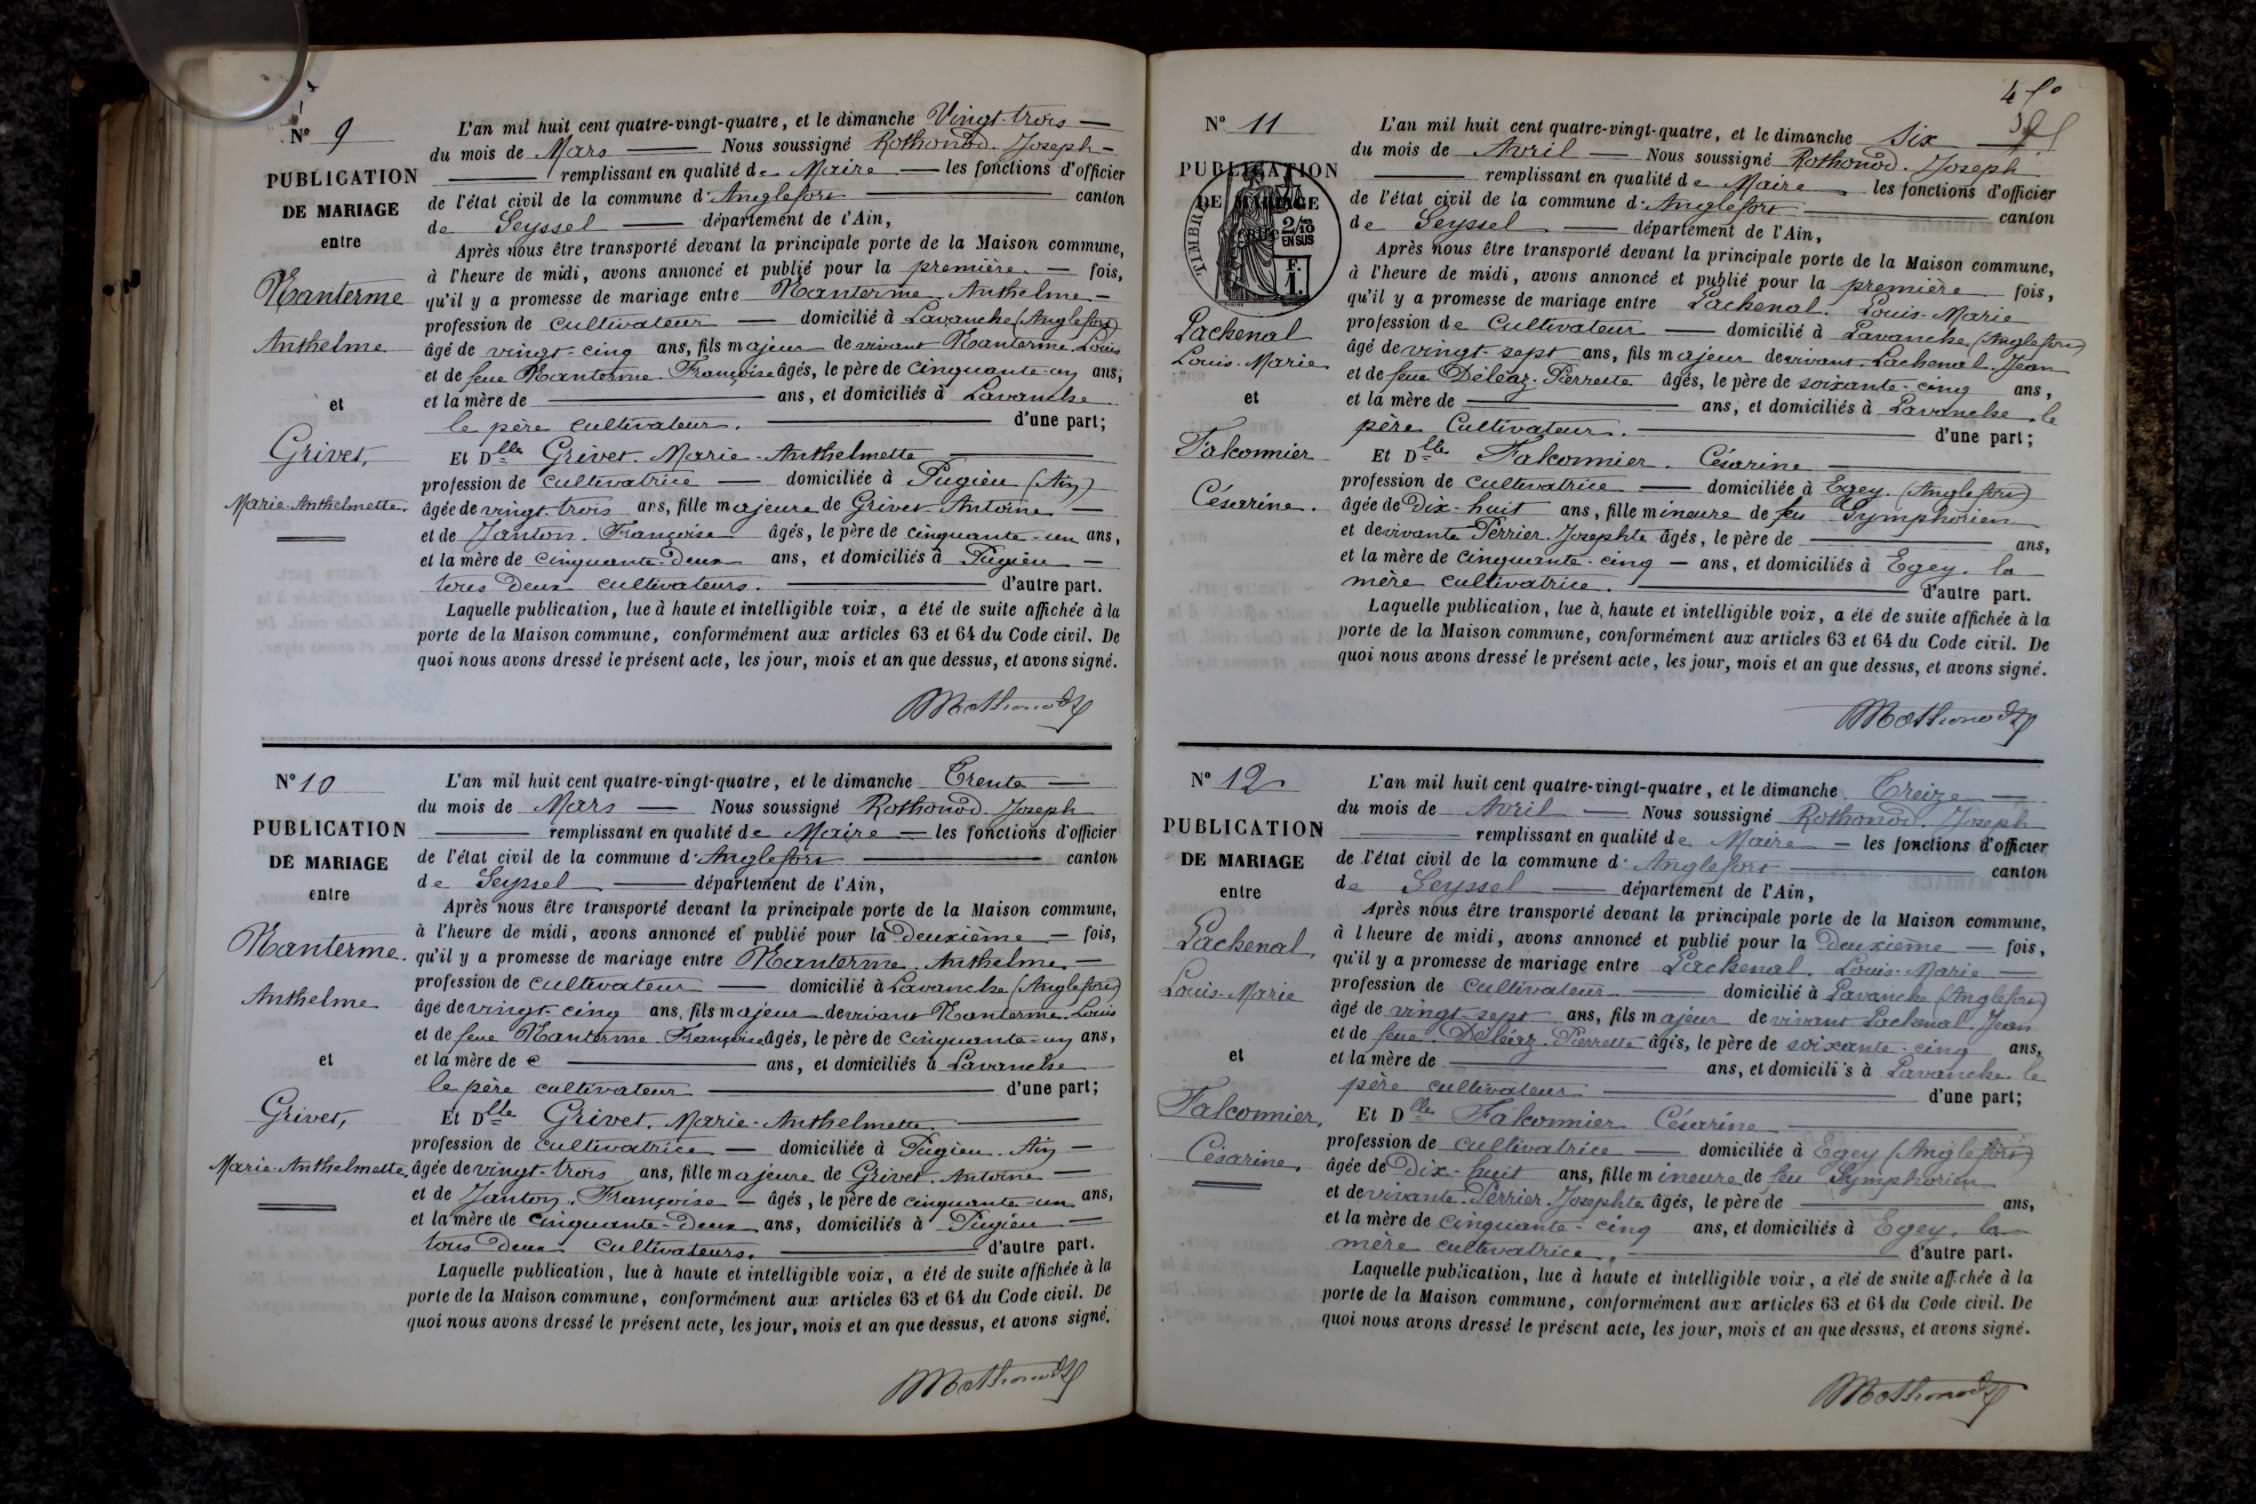 N° 9
PUBLICATION
DE MARIAGE
entre
Nanterme
Anthelme
et
Grivet,
Marie-Anthelmette.
L'an mil huit cent quatre-vingt-quatre, et le dimanche Vingt-trois
du mois de Mars Nous soussigné Rothonod. Joseph
remplissant en qualité de Maire les fonctions d'officier
de l'état civil de la commune d'Anglefort canton
de Seyssel département de l'Ain,
Après nous être transporté devant la principale porte de la Maison commune,
à l'heure de midi, avons annoncé et publié pour la première fois,
qu'il y a promesse de mariage entre Nanterme Anthelme
profession de cultivateur domicilié à Lavanche (Anglefort)
âgé de vingt-cinq ans, fils majeur de vivant Nanterme Louis
et de feue Nanterme. Françoise âgés, le père de cinquante-un ans,
et la mère de ans, et domiciliés à Lavanche
le père cultivateur. d'une part;
Et Dlle Grivet. Marie-Anthelmette
profession de cultivatrice domiciliée à Pugieu (Ain)
âgée de vingt-trois ans, fille majeure de Grivet Antoine
et de Janton. Françoise âgés, le père de cinquante-un ans,
et la mère de cinquante-deux ans, et domiciliés à Pugieu
tous deux cultivateurs. d'autre part.
Laquelle publication, lue à haute et intelligible voix, a été de suite affichée à la
porte de la Maison commune, conformément aux articles 63 et 64 du Code civil. De
quoi nous avons dressé le présent acte, les jour, mois et an que dessus, et avons signé.
N° 10
PUBLICATION
DE MARIAGE
entre
Nanterme.
Anthelme
et
Grivet,
Marie-Anthelmette.
L'an mil huit cent quatre-vingt-quatre, et le dimanche Trente
du mois de Mars Nous soussigné Rothonod Joseph
remplissant en qualité de Maire les fonctions d'officier
de l'état civil de la commune d'Anglefort canton
de Seyssel département de l'Ain,
Après nous être transporté devant la principale porte de la Maison commune,
à l'heure de midi, avons annoncé et publié pour la deuxième fois,
qu'il y a promesse de mariage entre Nanterme. Anthelme.
profession de cultivateur domicilié à Lavanche (Anglefort)
âgé de vingt-cinq ans, fils majeur de vivant Nanterme Louis
et de feue Nanterme. Françoise âgés, le père de cinquante-un ans,
et la mère de e ans, et domiciliés à Lavanche
le père cultivateur d'une part;
Et Dlle Grivet. Marie-Anthelmette.
profession de cultivatrice domiciliée à Pugieu. Ain
âgée de vingt-trois ans, fille majeure de Grivet. Antoine
et de Janton. Françoise âgés, le père de cinquante-un ans,
et la mère de cinquante-deux ans, domiciliés à Pugieu
tous deux cultivateurs. d'autre part.
Laquelle publication, lue à haute et intelligible voix, a été de suite affichée à la
porte de la Maison commune, conformément aux articles 63 et 64 du Code civil. De
quoi nous avons dressé le présent acte, les jour, mois et an que dessus, et avons signé.
N° 11
PUBLICATION
DE MARIAGE
TIMBRE
2/10
EN SUS
F.
1.
Lachenal
Louis-Marie
et
Falconnier
Césarine.
L'an mil huit cent quatre-vingt-quatre, et le dimanche six
du mois de Avril Nous soussigné Rothonod. Joseph
remplissant en qualité de Maire les fonctions d'officier
de l'état civil de la commune d'Anglefort canton
de Seyssel département de l'Ain,
Après nous être transporté devant la principale porte de la Maison commune,
à l'heure de midi, avons annoncé et publié pour la première fois,
qu'il y a promesse de mariage entre Lachenal. Louis-Marie
profession de Cultivateur domicilié à Lavanche (Anglefort)
âgé de vingt-sept ans, fils majeur de vivant Lachenal. Jean
et de feue Déléaz. Pierrette âgés, le père de soixante-cinq ans,
et la mère de ans, et domiciliés à Lavanche. le
père Cultivateur. d'une part;
Et Dlle Falconnier. Césarine
profession de cultivatrice domiciliée à Egey. (Anglefort)
âgée de Dix-huit ans, fille mineure de feu Symphorien
et de vivante Perrier. Josephte âgés, le père de ans,
et la mère de cinquante-cinq ans, et domiciliés à Egey. la
mère cultivatrice. d'autre part.
Laquelle publication, lue à haute et intelligible voix, a été de suite affichée à la
porte de la Maison commune, conformément aux articles 63 et 64 du Code civil. De
quoi nous avons dressé le présent acte, les jour, mois et an que dessus, et avons signé.
N° 12
PUBLICATION
DE MARIAGE
entre
Lachenal,
Louis-Marie
et
Falconnier,
Césarine.
L'an mil huit cent quatre-vingt-quatre, et le dimanche Treize
du mois de Avril Nous soussigné Rothonod. Joseph
remplissant en qualité de Maire les fonctions d'officier
de l'état civil de la commune d'Anglefort canton
de Seyssel département de l'Ain,
Après nous être transporté devant la principale porte de la Maison commune,
à l'heure de midi, avons annoncé et publié pour la deuxième fois,
qu'il y a promesse de mariage entre Lachenal. Louis-Marie
profession de cultivateur domicilié à Lavanche (Anglefort)
âgé de vingt-sept ans, fils majeur de vivant Lachenal. Jean
et de feue Déléaz. Pierrette âgés, le père de soixante-cinq ans,
et la mère de ans, et domiciliés à Lavanche. le
père cultivateur d'une part;
Et Dlle Falconnier Césarine
profession de cultivatrice domiciliée à Egey (Anglefort)
âgée de Dix-huit ans, fille mineure de feu Symphorien
et de vivante Perrier. Josephte âgés, le père de ans,
et la mère de cinquante-cinq ans, et domiciliés à Egey. la
mère cultivatrice. d'autre part.
Laquelle publication, lue à haute et intelligible voix, a été de suite affichée à la
porte de la Maison commune, conformément aux articles 63 et 64 du Code civil. De
quoi nous avons dressé le présent acte, les jour, mois et an que dessus, et avons signé.